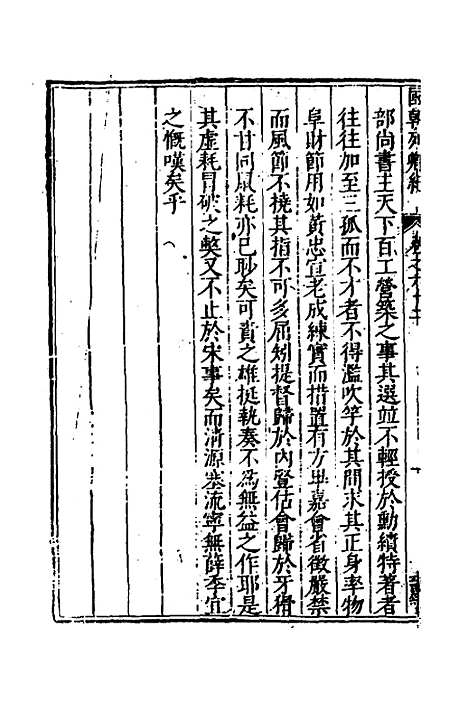 國朝列卿紀 卷之六十二
部尚書主天下百工營築之事其選並不輕授於勳績特著者
往往加至三孤而不才者不得濫吹竽於其間求其正身率物
阜財節用如黃忠宣老成練實而措置有方毕嘉會省徵嚴禁
而風節不橈其指不可多屈矧提督歸於內豎估會歸於牙檜
不甘同鼠耗亦已眇矣可責之雄挺執奏不為無益之作耶是
其虛耗冒破之獘又不止於宋事矣而清源塞流寧無薛季宣
之慨嘆矣乎